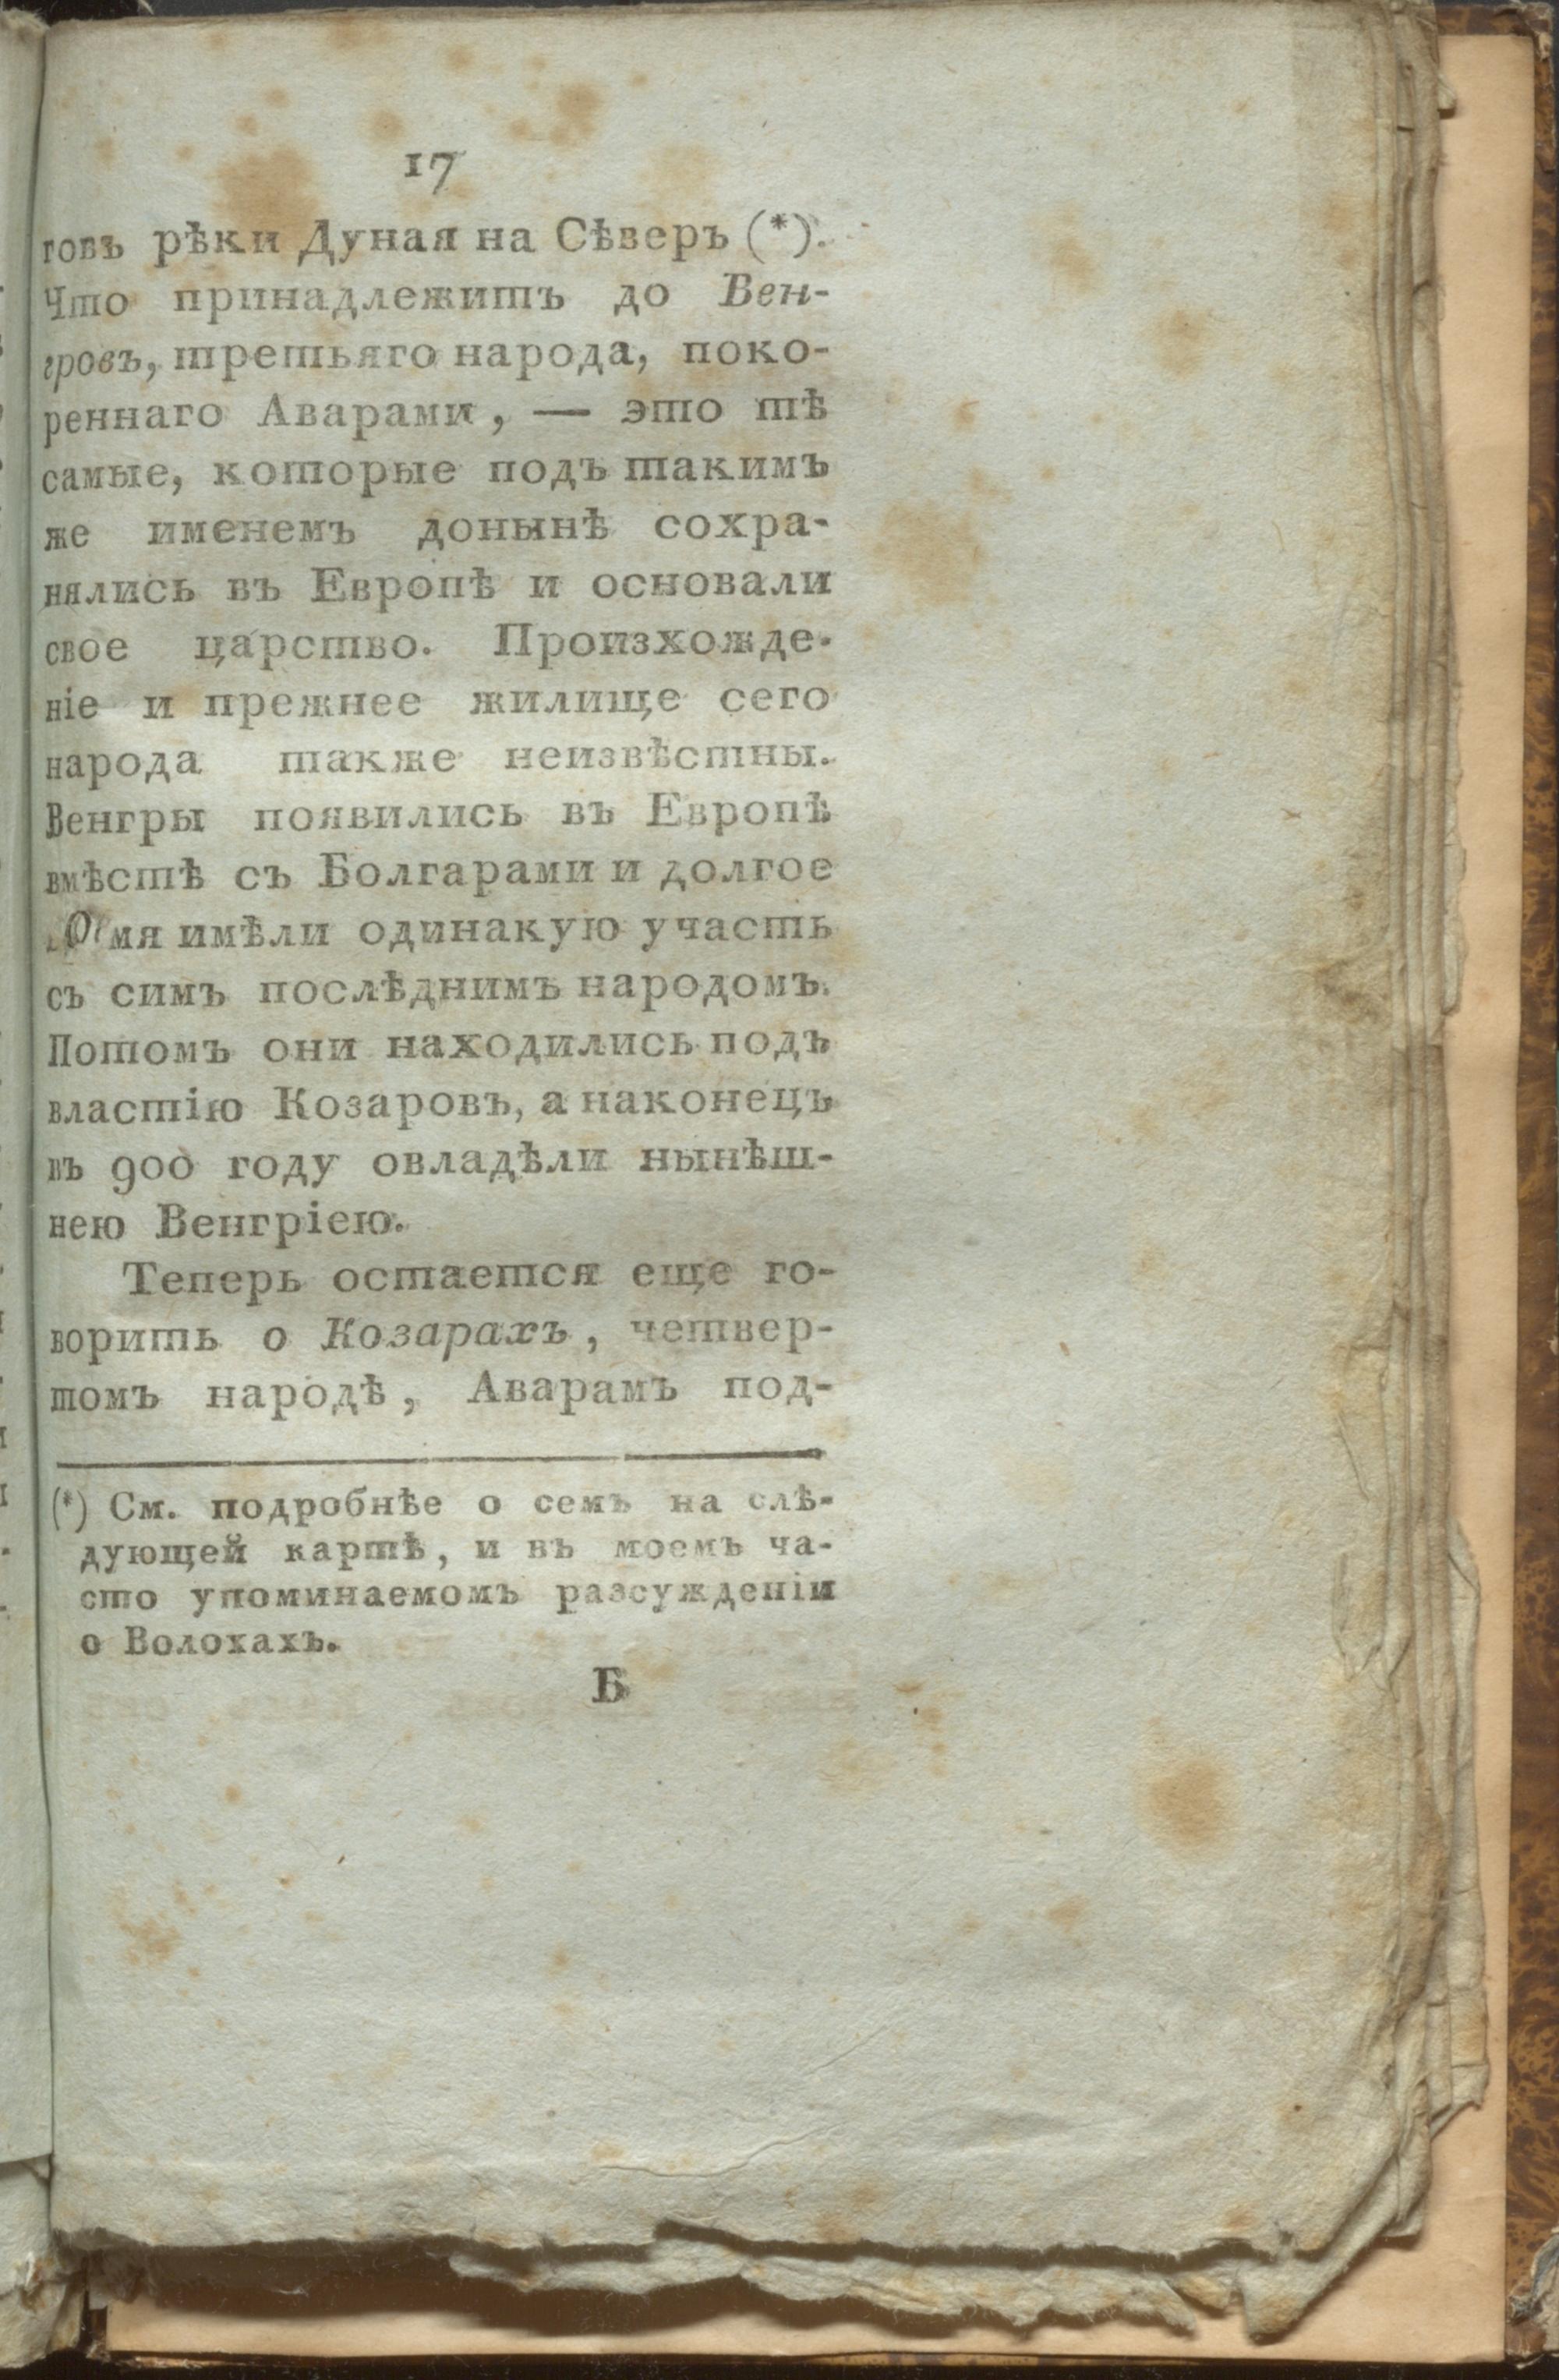 17
говъ рѣки Дуная на Сѣверъ (*).
Что принадлежитъ до Вен-
гровъ, третьяго народа, поко-
реннаго Аварами, — это тѣ
самые, которые подъ такимъ
же именемъ донынѣ сохра-
нялись въ Европѣ и основали
свое царство. Произхожде-
ніе и прежнее жилище сего
народа также неизвѣстны.
Венгры появились въ Европѣ
вмѣстѣ съ Болгарами и долгое
время имѣли одинакую участь
съ симъ послѣднимъ народомъ.
Потомъ они находились подъ
властію Козаровъ, а наконецъ
въ 900 году овладѣли нынѣш-
нею Венгріею.
Теперь остается еще го-
ворить о Козарахъ, четвер-
томъ народѣ, Аварамъ под-
(*) См. подробнѣе о семъ на слѣ-
дующей картѣ, и въ моемъ ча-
сто упоминаемомъ разсужденіи
о Волохахъ.
Б